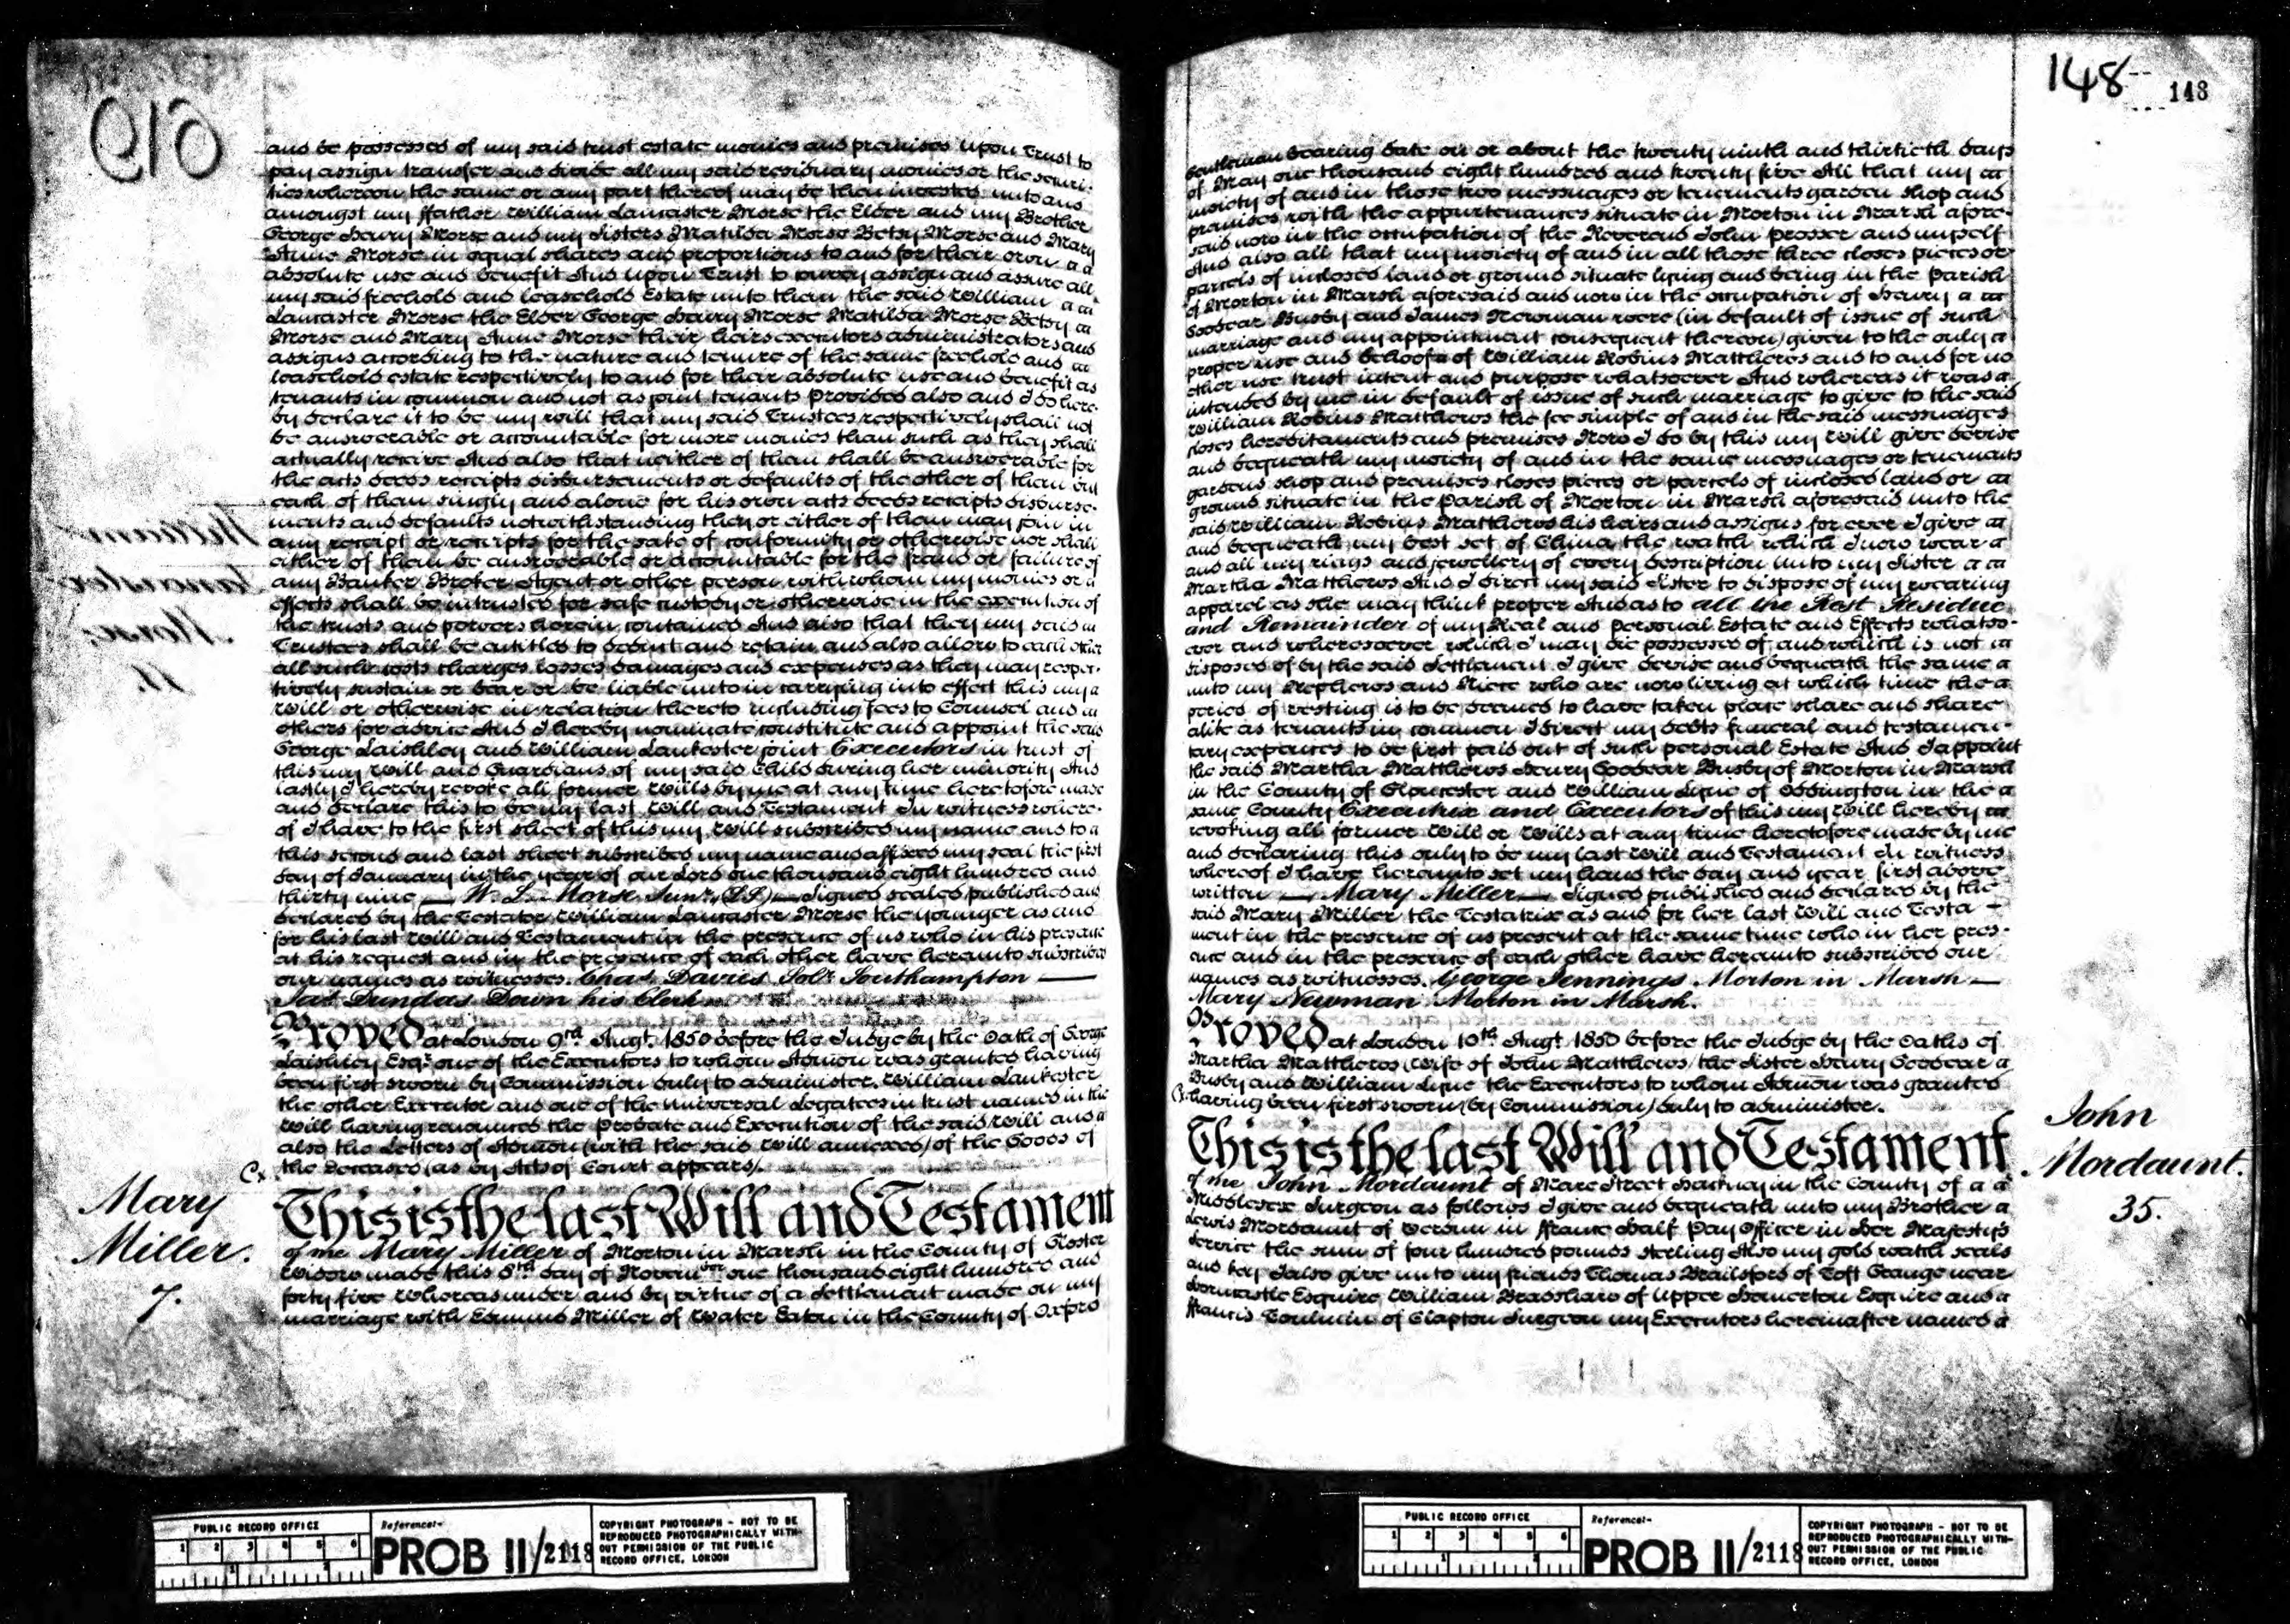 and be possessed of my said trust estate monies and premises Upon Trust to
pay assign transfer and divide all my said residuary monies or the securi-
ties whereon the same or any part thereof may be then invested unto and
amongst my ffather William Lancaster Morse the Elder and my Brother
George Henry Morse and my sisters Matilda Morse Betsy Morse and Mary
Anne Morse in equal shares and proportions to and for their own
absolute use and benefit And upon Trust to convey assign and assure all
my said freehold and leasehold Estate unto them the said William
Lancaster Morse the Elder George Henry Morse Matilda Morse Betsy
Morse and Mary Anne Morse their heirs executors administrators and
assigns according to the nature and tenure of the same freehold and
leasehold estate respectively to and for their absolute use and benefit as
tenants in common and not as joint tenants Provided also and I do here-
by declare it to be my will that my said Trustees respectively shall not
be answerable or accountable for more monies than such as they shall
actually receive And also that neither of them shall be answerable for
the acts deeds receipts disbursements or defaults of the other of them but
each of them singly and alone for his own acts deeds receipts disburse-
ments and defaults notwithstanding they or either of them may join in
any receipt or receipts for the sake of conformity or otherwise nor shall
either of them be answerable or accountable for the fraud or failure of
any Banker Broker Agent or other person with whom my monies or
effects shall be intrusted for safe custody or otherwise in the execution of
the trusts and powers herein contained And also that they my said
Trustees shall be entitled to deduct and retain and also allow to each other
all such costs charges losses damages and expenses as they may respec-
tively sustain or bear or be liable unto in carrying into effect this my
Will or otherwise in relation thereto including fees to Counsel and
others for advice And I hereby nominate constitute and appoint the said
George Laishley and William Lankester joint Executors in trust of
this my Will and Guardians of my said Child during her minority And
lastly I hereby revoke all former Wills by me at any time heretofore made
and declare this to be my last Will and Testament In witness where-
of I have to the first sheet of this my Will subscribed my name and to
this second and last sheet subscribed my name and affixed my seal the first
day of January in the year of our Lord one thousand eight hundred and
thirty nine — W. L. Morse Junr. (LS) — Signed sealed published and
declared by the Testator William Lancaster Morse the younger as and
for his last Will and Testament in the presence of us who in his presence
at his request and in the presence of each other have hereunto subscribed
our names as witnesses. Chas. Davies Solr. Southampton —
Jas. Dundas Down his Clerk
Proved at London 9th Augt. 1850 before the Judge by the Oath of George
Laishley Esqr. one of the Executors to whom Admon was granted having
been first sworn by Commission duly to administer. William Lankester
the other Executor and one of the Universal Legatees in trust named in the
Will having renounced the Probate and Execution of the said Will and
also the Letters of Admon (with the said Will annexed) of the Goods of
the Deceased (as by Acts of Court appears).
Mary
Miller.
7.
This is the last Will and Testament
of me Mary Miller of Morton in Marsh in the County of Gloster
Widow made this 8th day of November one thousand eight hundred and
forty five Whereas under and by virtue of a Settlement made on my
marriage with Edmund Miller of Water Eaton in the County of Oxford
PUBLIC RECORD OFFICE
Reference:-
PROB 11/2118
COPYRIGHT PHOTOGRAPH - NOT TO BE
REPRODUCED PHOTOGRAPHICALLY WITH-
OUT PERMISSION OF THE PUBLIC
RECORD OFFICE, LONDON
148
148
Gentleman bearing date on or about the twenty ninth and thirtieth days
of May one thousand eight hundred and twenty five All that my
moiety of and in those two messuages or tenements garden shop and
premises with the appurtenances situate in Morton in Marsh afore-
said now in the occupation of the Reverend John Prosser and myself
And also all that my moiety of and in all those three closes pieces or
parcels of inclosed land or ground situate lying and being in the Parish
of Morton in Marsh aforesaid and now in the occupation of Henry
Goodear Busby and James Newman were (in default of issue of such
marriage and my appointment consequent thereon) given to the only
proper use and behoof of William Robins Matthews and to and for no
other use trust intent and purpose whatsoever And whereas it was
intended by me in default of issue of such marriage to give to the said
William Robins Matthews the fee simple of and in the said messuages
closes hereditaments and premises Now I do by this my Will give devise
and bequeath my moiety of and in the same messuages or tenements
gardens shop and premises closes pieces or parcels of inclosed land or
ground situate in the Parish of Morton in Marsh aforesaid unto the
said William Robins Matthews his heirs and assigns for ever I give
and bequeath my best set of China the watch which I now wear
and all my rings and jewellery of every description unto my Sister
Martha Matthews And I direct my said Sister to dispose of my wearing
apparel as she may think proper And as to all the Rest Residue
and Remainder of my Real and personal Estate and Effects whatso-
ever and wheresoever which I may die possessed of and which is not
disposed of by the said Settlement I give devise and bequeath the same
unto my Nephews and Niece who are now living at which time the
period of vesting is to be deemed to have taken place share and share
alike as tenants in common I direct my debts funeral and testamen-
tary expences to be first paid out of such personal Estate And I appoint
the said Martha Matthews Henry Goodear Busby of Morton in Marsh
in the County of Gloucester and William Lyne of Oddington in the
same County Executrix and Executors of this my Will hereby
revoking all former Will or Wills at any time heretofore made by me
and declaring this only to be my last Will and Testament In witness
whereof I have hereunto set my hand the day and year first above
written — Mary Miller — Signed published and declared by the
said Mary Miller the Testatrix as and for her last Will and Testa-
ment in the presence of us present at the same time who in her pres-
ence and in the presence of each other have hereunto subscribed our
names as witnesses. George Jennings Morton in Marsh —
Mary Newman Morton in Marsh.
Proved at London 10th Augt. 1850 before the Judge by the Oaths of
Martha Matthews (wife of John Matthews) the Sister Henry Goodear
Busby and William Lyne the Executors to whom Admon was granted
having been first sworn (by Commission) duly to administer.
John
Mordaunt.
35.
This is the last Will and Testament
of me John Mordaunt of Mare Street Hackney in the County of
Middlesex Surgeon as follows I give and bequeath unto my Brother
Lewis Mordaunt of Verdun in ffrance Half Pay Officer in Her Majesty's
Service the sum of four hundred pounds sterling Also my gold watch seals
and key I also give unto my friends Thomas Brailsford of Toft Grange near
Horncastle Esquire William Bradshaw of Upper Homerton Esquire and
ffrancis Toulmin of Clapton Surgeon my Executors hereinafter named
PUBLIC RECORD OFFICE
Reference:-
PROB 11/2118
COPYRIGHT PHOTOGRAPH - NOT TO BE
REPRODUCED PHOTOGRAPHICALLY WITH-
OUT PERMISSION OF THE PUBLIC
RECORD OFFICE, LONDON